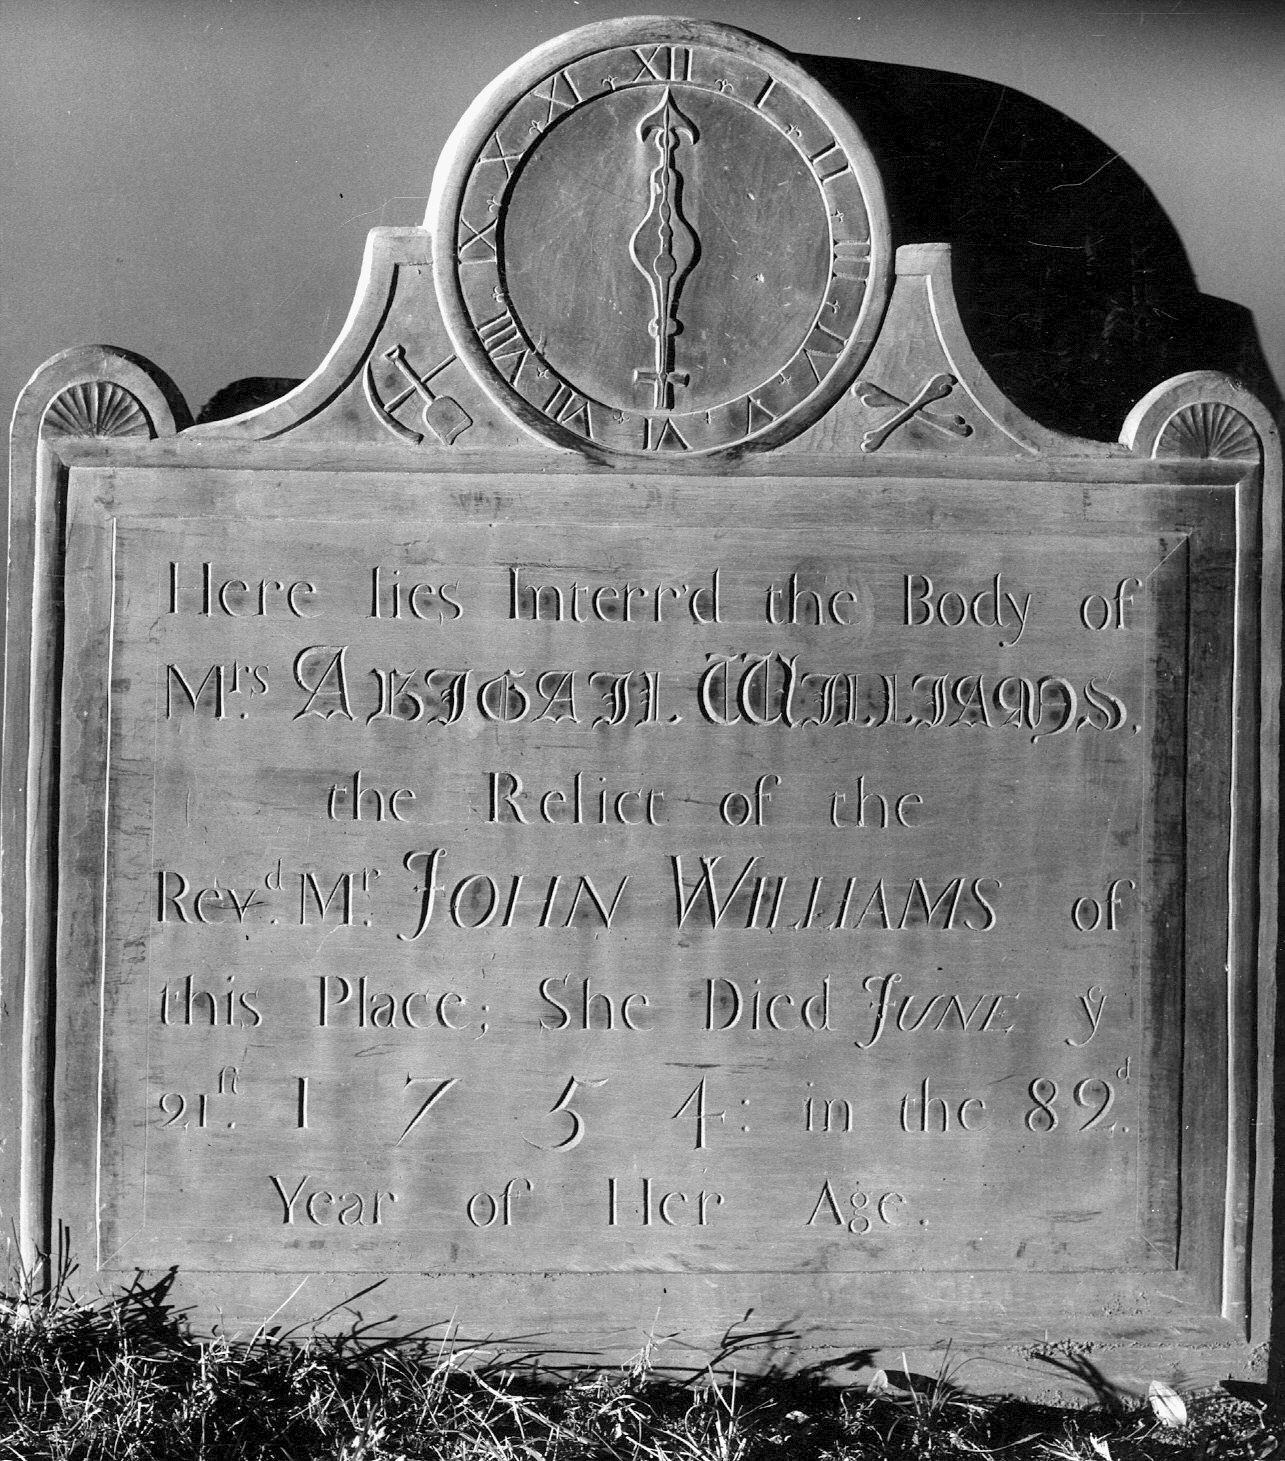 XII I II III IV V VI VII VIII IX X XI
Here lies Interr'd the Body of
Mrs. ABIGAIL WILLIAMS.
the Relict of the
Revd. Mr. JOHN WILLIAMS of
this Place; She Died JUNE ye
21ſt. 1754: in the 89d.
Year of Her Age.